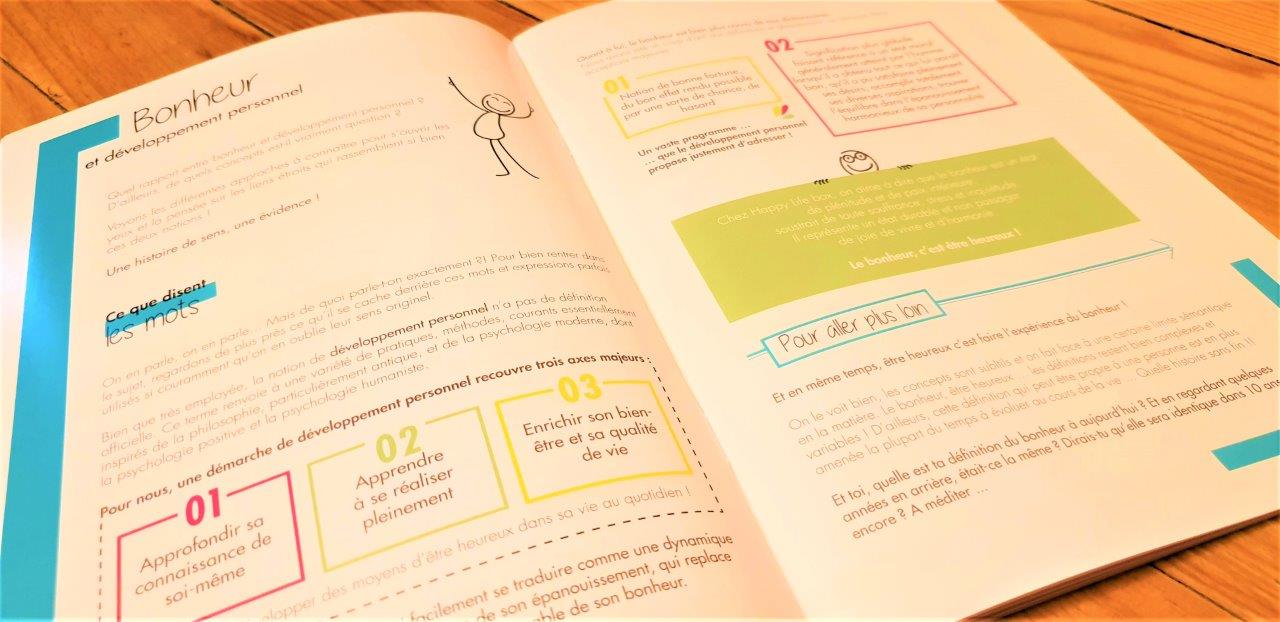 Bonheur
et développement personnel
Quel rapport entre bonheur et développement personnel ?
D'ailleurs, de quels concepts est-il vraiment question ?
Voyons les différentes approches à connaître pour s'ouvrir les
yeux et la pensée sur les liens étroits qui rassemblent si bien
ces deux notions !
Une histoire de sens, une évidence !
Ce que disent
les mots
On en parle, on en parle... Mais de quoi parle-t-on exactement ?! Pour bien rentrer dans
le sujet, regardons de plus près ce qu'il se cache derrière ces mots et expressions parfois
utilisés si couramment qu'on en oublie leur sens originel.
Bien que très employée, la notion de développement personnel n'a pas de définition
officielle. Ce terme renvoie à une variété de pratiques, méthodes, courants essentiellement
inspirés de la philosophie, particulièrement antique, et de la psychologie moderne, dont
la psychologie positive et la psychologie humaniste.
Pour nous, une démarche de développement personnel recouvre trois axes majeurs :
01
Approfondir sa
connaissance de
soi-même
02
Apprendre
à se réaliser
pleinement
03
Enrichir son bien-
être et sa qualité
de vie
des moyens d'être heureux dans sa vie au quotidien !
facilement se traduire comme une dynamique
de son épanouissement, qui replace
de son bonheur.
Quant à lui, le bonheur est bien plus
01
Notion de bonne fortune,
du bon effet rendu possible
par une sorte de chance, de
hasard
02
Signification plus globale
faisant référence à un état moral
généralement atteint par l'homme
lorsqu'il a obtenu tout ce qui lui paraît
bon, qu'il a pu satisfaire pleinement
ses désirs, accomplir totalement
ses diverses aspirations, trouver
l'équilibre dans l'épanouissement
harmonieux de sa personnalité
Un vaste programme ...
... que le développement personnel
propose justement d'adresser !
Chez Happy Life box, on aime à dire que le bonheur est un état
de plénitude et de paix intérieure
soustrait de toute souffrance, stress et inquiétude.
Il représente un état durable et non passager
de joie de vivre et d'harmonie.
Le bonheur, c'est être heureux !
Pour aller plus loin
Et en même temps, être heureux c'est faire l'expérience du bonheur !
On le voit bien, les concepts sont subtils et on fait face à une certaine limite sémantique
en la matière. Le bonheur, être heureux ... les définitions restent bien complexes et
variables ! D'ailleurs, cette définition qui peut être propre à une personne est en plus
amenée la plupart du temps à évoluer au cours de la vie ... Quelle histoire sans fin !!
Et toi, quelle est ta définition du bonheur à aujourd'hui ? Et en regardant quelques
années en arrière, était-ce la même ? Dirais-tu qu'elle sera identique dans 10 ans
encore ? A méditer ...